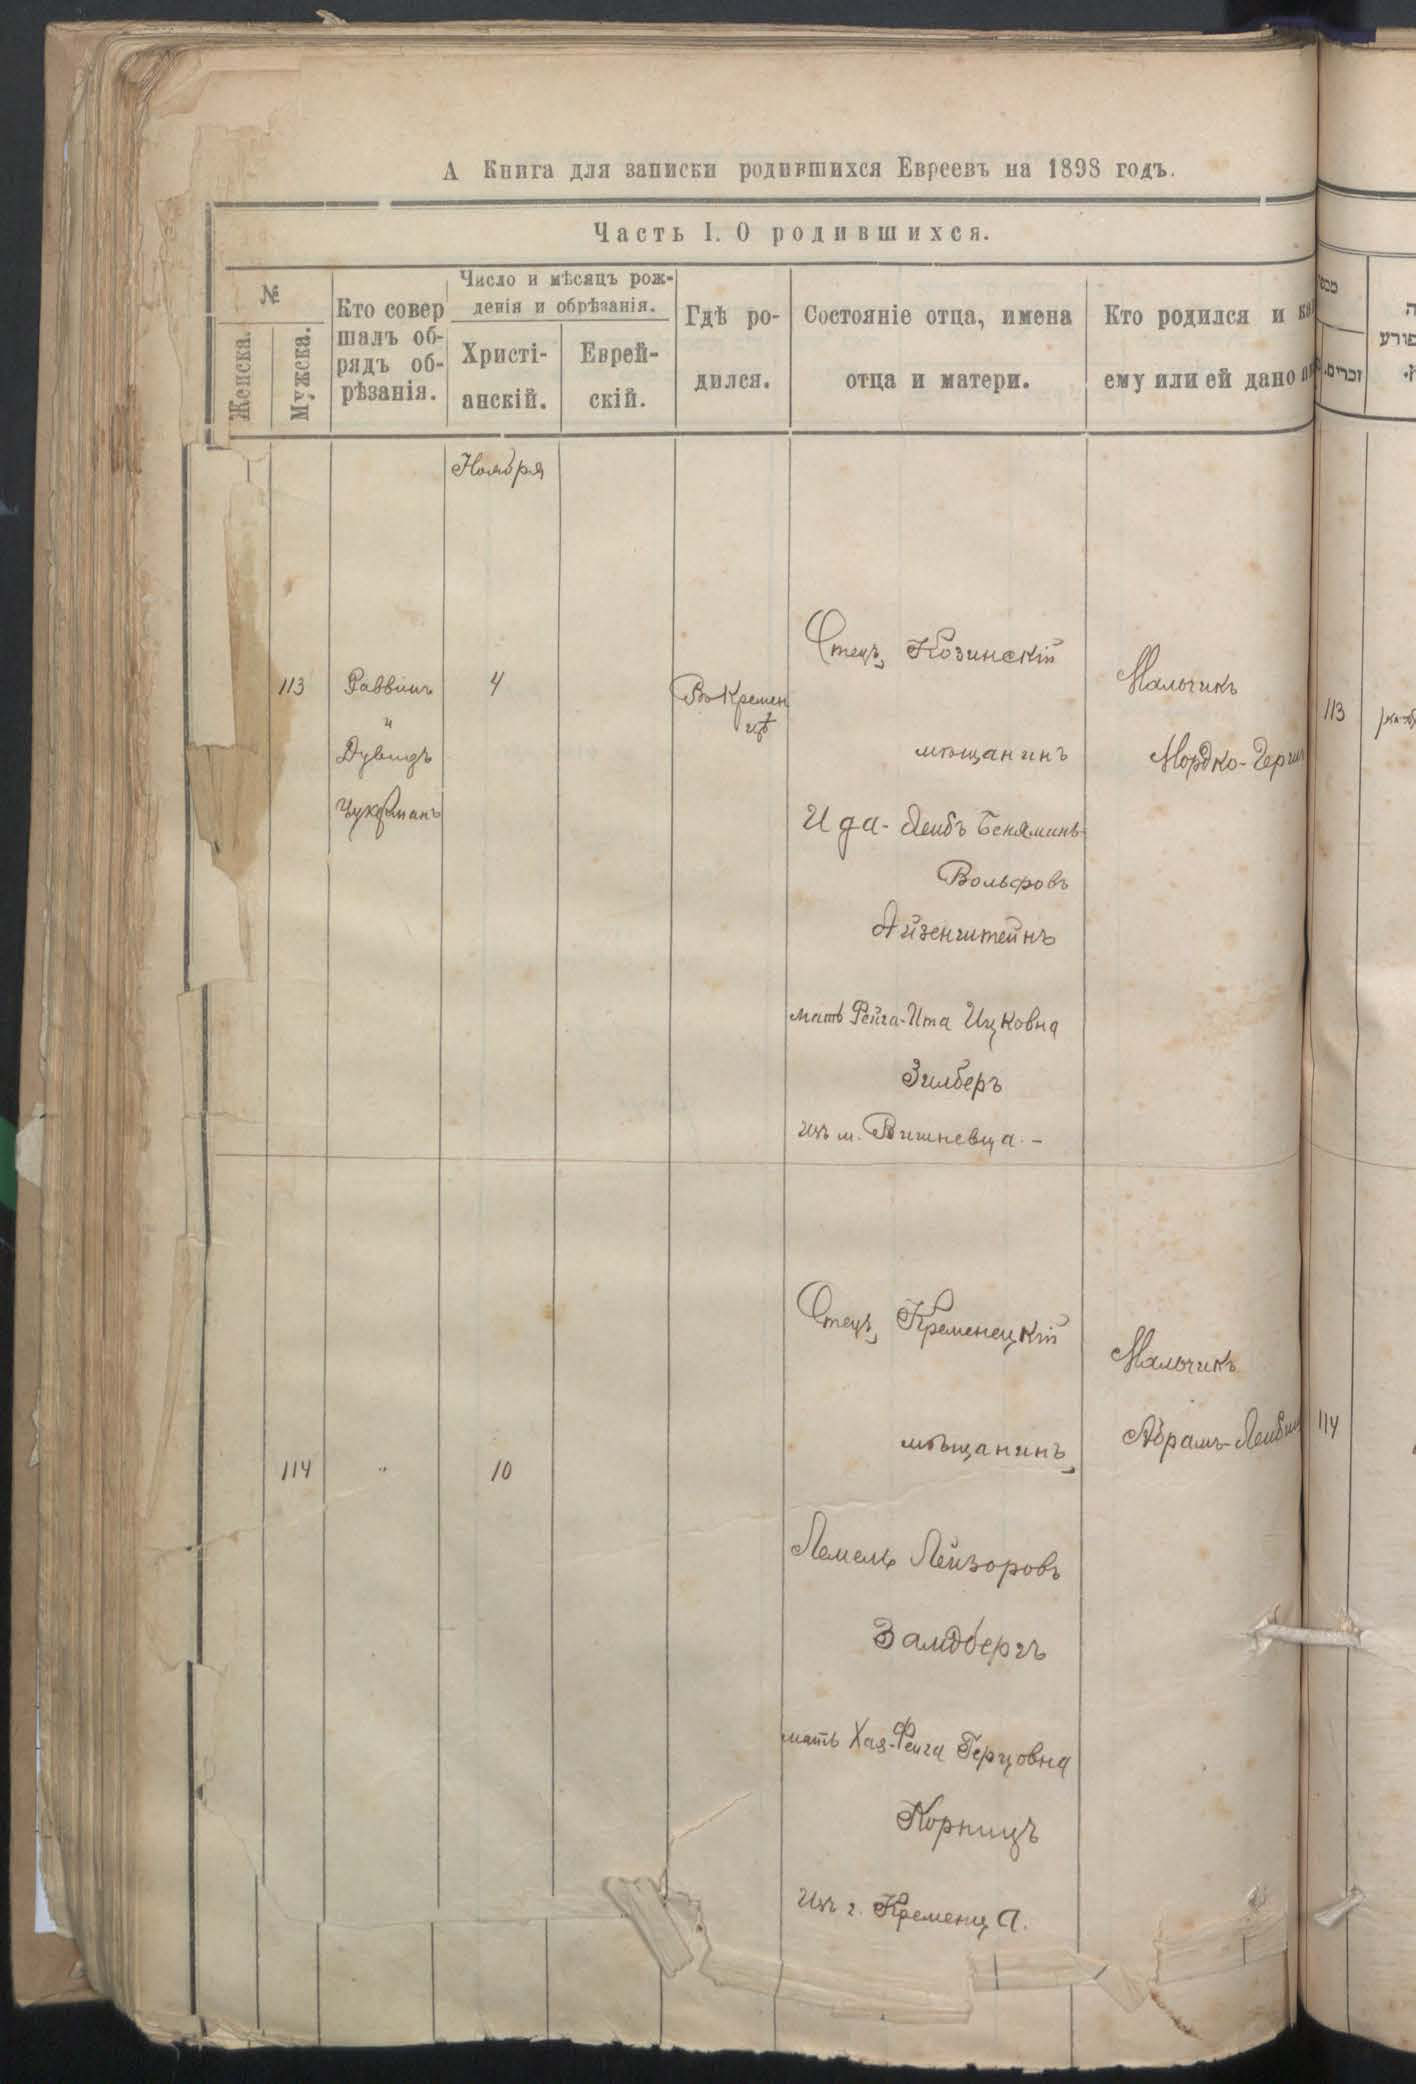 А Книга для записки родившихся Евреевъ на 1898 годъ.
Часть I. О родившихся.
№
Женска.
Мужска.
Кто совер
шалъ об-
рядъ об-
рѣзанія.
Число и мѣсяцъ рож-
денія и обрѣзанія.
Христі-
анскій.
Еврей-
скій.
Гдѣ ро-
дился.
Состояніе отца, имена
отца и матери.
Кто родился и
ему или ей дано
זכרים.
Ноября
113
Раввинъ
и
Дувидъ
Цукерманъ
4
Въ Кремен
цѣ
Отецъ, Козинскій
мѣщанинъ
Ида-Лейбъ Беняминъ-
Вольфовъ
Айзенштейнъ
мать Рейза-Ита Ицковна
Зилберъ
изъ м. Вишневца.-
Мальчикъ
Мордко-
113
114
"
10
Отецъ, Кременецкій
мѣщанинъ,
Лемель Лейзоровъ
Замдбергъ
мать Хая-Фейга Герцовна
Корницъ
Изъ г. Кременца.
Мальчикъ
Абрамъ-
114